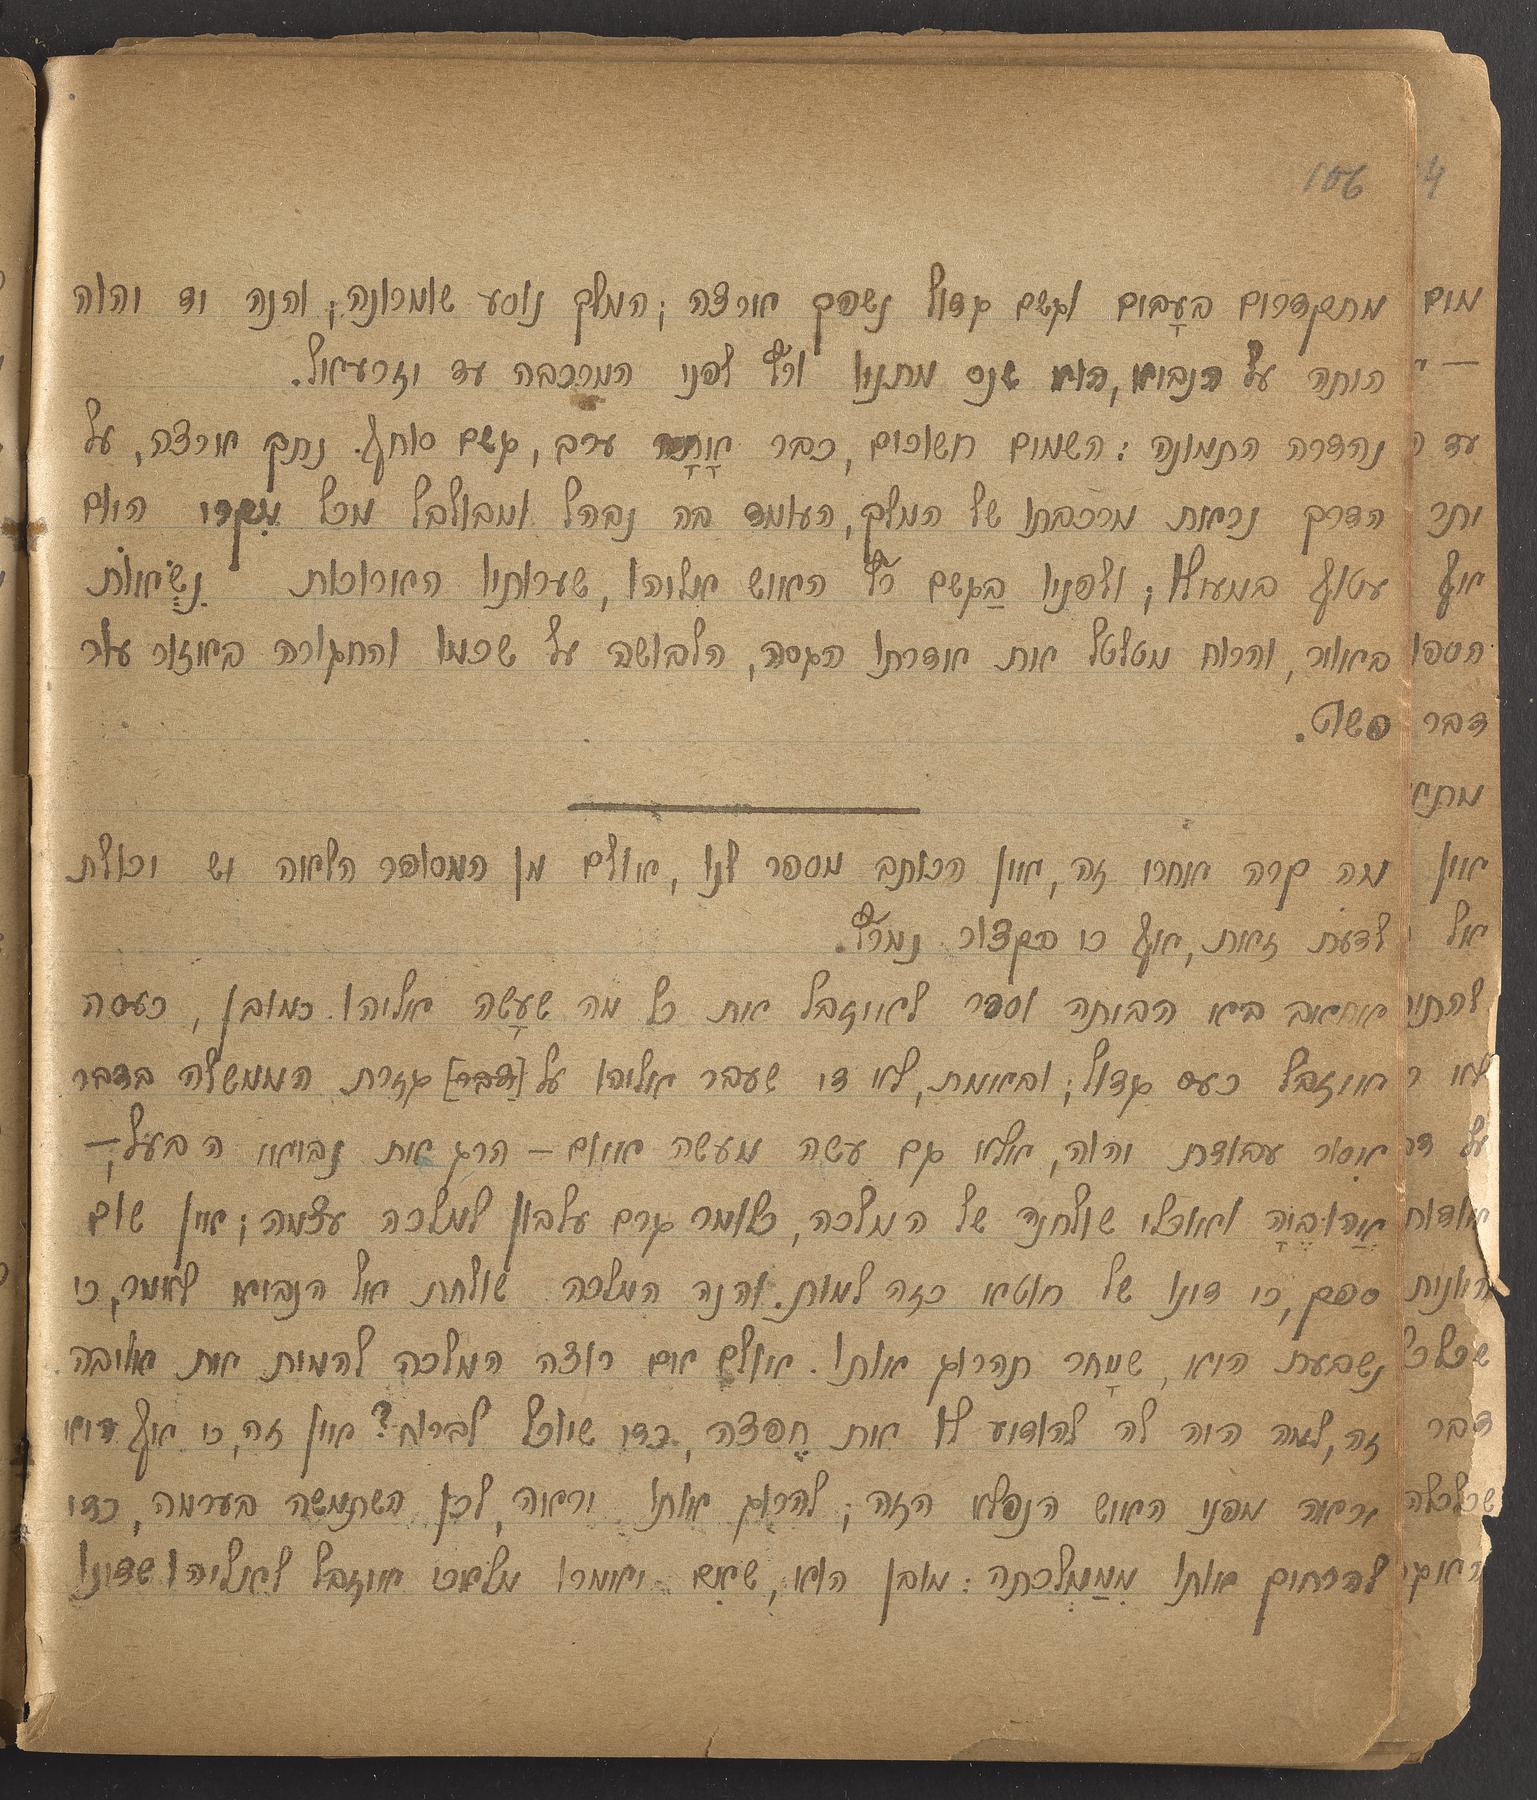 106
מתקדרים בעָבים וגשם גדול נשפך ארצה; המלך נוסע שומרונה; והנה יד יהוה
היתה על הנביא, הוא שנס מתניו ורץ לפני המרכבה עד יזרעאל.
נהדרה התמונה: השמים חשוכים, כבר ערב, גשם סוחף. נתך ארצה, על
הדרך נראית מרכבתו של המלך, העומד בה נבהל ומבולבל מכל מִקרי היום
עטוף במעילו; ולפניו בַגשם רץ האיש אליהו, שערותיו הארוכות נִשָׂאות
באויר, והרוח מטלטל את אדרתו הגסה, הלבושה על שכמו והחגורה באזור עור
פשוט.
מה קרה אחרי זה, אין הכותב מספר לנו, אולם מן המסופר הלאה יש יכולת
לדעת זאת, אף כי בקצור נמרץ.
אחאב בא הביתה וספר לאיזבל את כל מה שעָשה אליהו. כמובן, כעסה
איזבל כעס גדול; ובאמת, לא די שעבר אליהו על [דבר] גזרת הממשלה בדבר
איסור עבודת יהוה, אלא גם עשה מעשה איום – הרג את נביאי הבעל,–
אֲהוּבֶיהָ ואוכלי שולחנה של המלכה, כלומר גרם עלבון למלכה עצמה; אין שום
ספק, כי דינו של חוטא כזה למות. והנה המלכה שולחת אל הנביא לאמר, כי
נשבעת היא, שמָחר תהרוג אותו. אולם אם רוצה המלכה להמית את אויבה
זה, למה היה לה להודיע לו את חֶפצה, כדי שיוכל לברוח? אין זה, כי אף היא
יראה מפני האיש הנפלא הזה; להרוג אותו יראה, לכן השתמשה בערמה, כדי
להרחיק אותו מִמַמְלכתה: מובן הוא, שאִם יאמרו מלאכי איזבל לאליהו שדינו